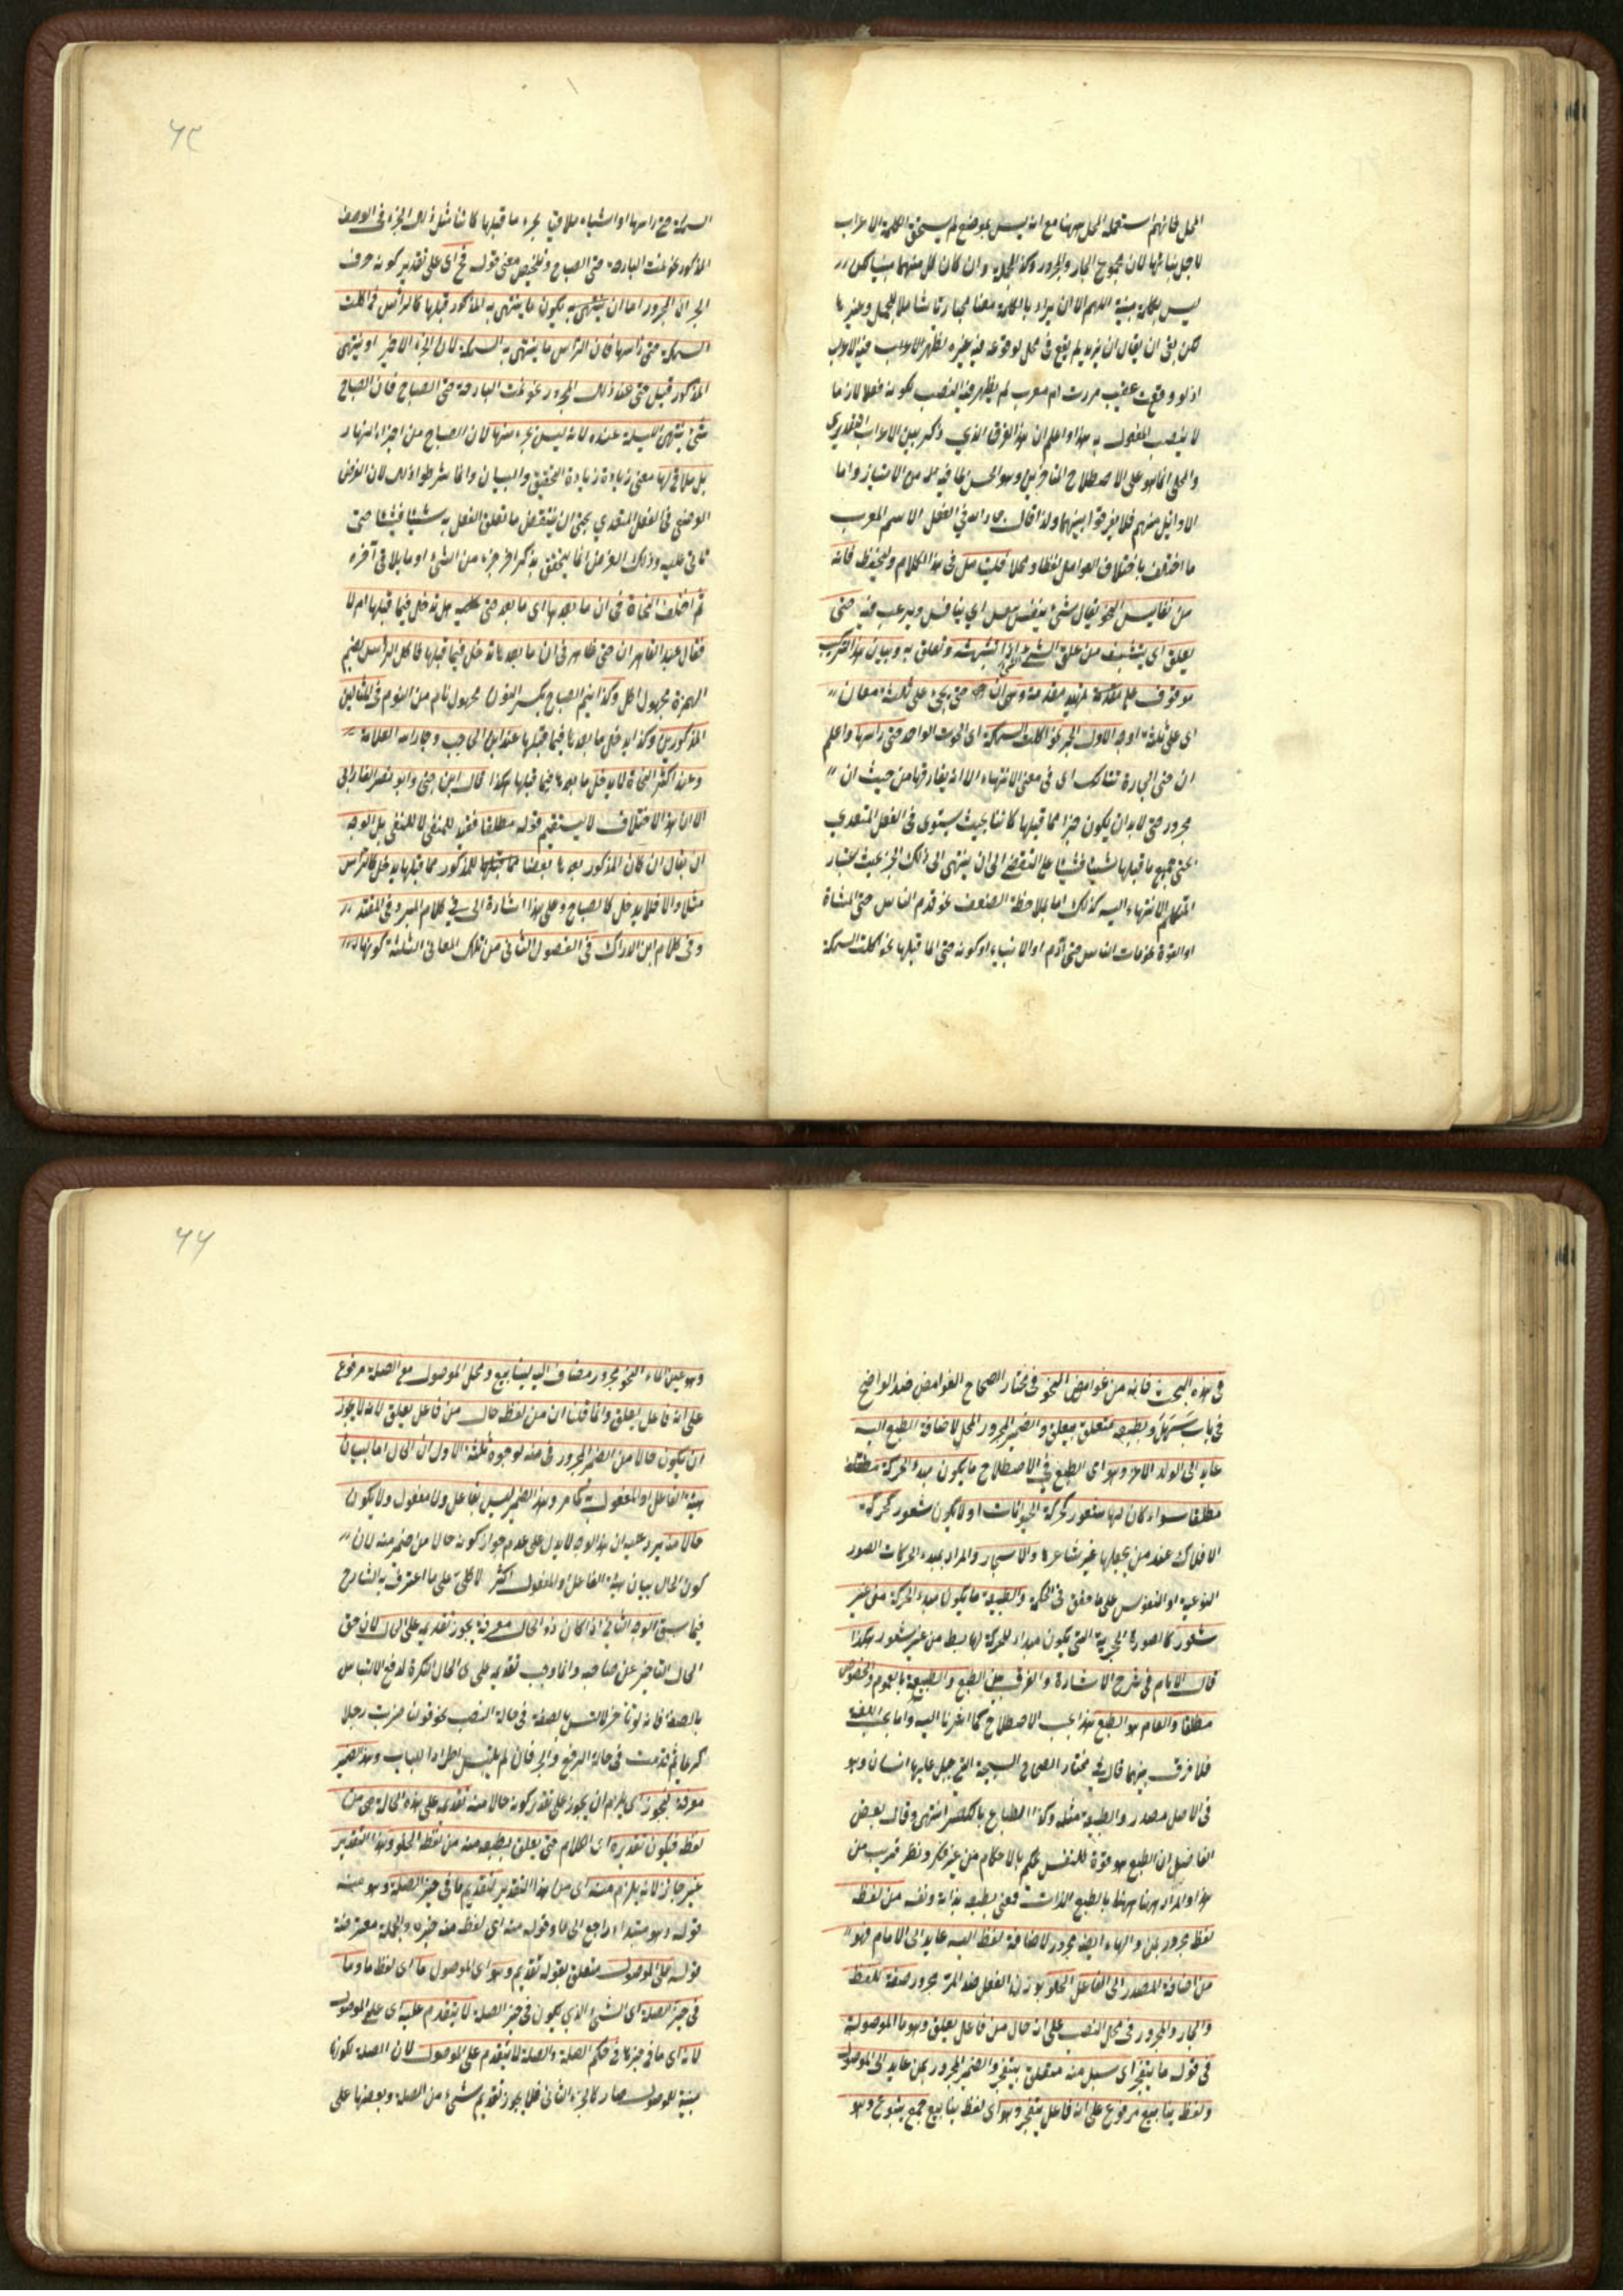 المحل فانهم استعملوا المحل ههنا مع انه ليس بموضع لم يستحق الكلمة الاعراب
لاجل بنائها لان مجموع الجار والمجرور وكذا الجملة وان كان كل منهما مبنيا لكن
ليس بكلمة مبنية اللهم الا ان يراد بالكلمة معنا مجازيا شاملا للجمل وغيرها
لكن بقى ان يقال ان يزيد لم يقع فى محل لو وقع فيه غيره يظهر الاعراب فيه لا يعرب
اذ لو وقعت عقيب مررت اسم معرب لم يظهر فيه النصب لكونه فعلا لازما
لا ينصب المفعول به هذا واعلم ان هذا الفرق الذي ذكر بين الاعراب التقديرى
والمحلى انما هو على الاصطلاح المتاخرين وهو الحسن لما فيه من الامتياز واما
الاوائل منهم فلا يفرقوا بينهما ولذا قال جار الله في المفصل الاسم المعرب
ما اختلف باختلاف العوامل لفظا ومحلا فليتامل فى هذا الكلام وليحفظ فانه
من نفايس النحو يقال شئ ينفس اي يتنافس ويرغب فيه حتى
يعلق اى يتشبث من علق الشئ اذا تشبثه وتعلق به وبيان هذا التركيب
موقوف على مقدمة تمهيد مقدمة وهى ان حتى يجئ على ثلثة معان
اى على ثلثة اوجه الاول الجر نحو اكلت السمكة اى الحوت الواحد حتى راسها واعلم
ان حتى الجارة تشارك الى فى معنى الانتهاء الا انه يفارقها من حيث ان
مجرور حتى لا بد ان يكون جزا مما قبلها كائنا بحيث يستوى فى الفعل المتعدي
بحتى جميع ما قبلها شيئا فشيئا على التقضي الى ان ينتهى الى ذلك الجزء بحيث يختار
المتكلم الانتهاء اليه كذلك اما بملاحظة الضعف نحو قدم الناس حتى المشاة
او القوة نحو مات الناس حتى آدم او الانبياء او كونه حتى لما قبلها نحو اكلت السمكة
٦٤
السمكة حتى راسها او اشياء ملاقى بجزء ما قبلها كائنا مثل ذلك الجزء فى الوصف
المذكور نحو نمت البارحة حتى الصباح وتلخيص معنى قوله فح اى على تقدير كونه حرف
الجر ان المجرور اما ان ينتهى به يكون ما ينتهى به المذكور قبلها كالرأس فى اكلت
السمكة حتى راسها فان الراس ما ينتهى به السمكة لان الجزء الاخير او ينتهى
المذكور قبل حتى عند ذلك المجرور نحو نمت البارحة حتى الصباح فان الصباح
شئ ينتهى الليلة عنده لانه ليس بجزء منها لان الصباح من اجزاء النهار
بل ملاق لها معنى زيادة زيادة التحقيق والبيان وانما شرطوا ذلك لان الغرض
الوضعى فى الفعل المتعدي بحتى ان ينقضى ما تعلق الفعل به شيئا فشيئا حتى
تأتى عليه وذلك الغرض انما يتحقق بذكر اخر جزء من الشئ او ما يلاقى آخره
ثم اختلف النحاة فى ان ما بعدها اى ما بعد حتى كلمة هل تدخل فيما قبلها ام لا
فقال عبد القاهر ان حتى ظاهر فى ان ما بعدها تدخل فيما قبلها فاكل الراس بضم
الهمزة مجهول اكل وكذا نيم الصباح بكسر النون مجهول نام من النوم فى المثالين
المذكورين وكذا يدخل ما بعدها فيما قبلها عند ابن الحاجب وجار الله العلامة
وعند اكثر النحاة لا يدخل ما بعدها فيما قبلها هكذا قال ابن جنى وابو نصر الفارابى
الا ان هذا الاختلاف لا يستقيم قوله مطلقا فقيد للمنفى لا للنفى بل الوجه
ان يقال ان كان المذكور بعدها بعضا مما قبلها للمذكور مما قبلها يدخل كالرأس
مثلا والا فلا يدخل كالصباح وعلى هذا اشارة الى في كلام المبرد فى المقتضب
وفى كلام ابن السراج فى الفصول الثانى من تلك المعانى الثلثة كونها
فى هذه البحث فانه من غوامض النحو فى مختار الصحاح الغوامض ضد الواضح
فى باب سَهُلَ وبطبعه متعلق بيعلق والضمير المجرور المحل لاضافة الطبع اليه
عايد الى الولد الاعز وهو اى الطبع في الاصطلاح ما يكون مبدء الحركة مطلقا
مطلقا سواء كان لها شعور كحركة الحيوانات او لا يكون شعور كحركة
الافلاك عند من يجعلها غير شاعرة والاشجار والمراد بمبدء الحركات الصور
النوعية او النفوس على ما حقق فى الحكمة والطبيعة ما يكون مبدء الحركة من غير
شعور كالصورة الحجرية التى يكون مبداء للحركة لها هبط من غير شعور هكذا
قال الامام فى شرح الاشارة والفرق بين الطبع والطبيعة بالعموم والخصوص
مطلقا والعام هو الطبع هذا بحسب الاصطلاح كما اشرنا اليه واما بحسب اللغة
فلا فرق بينهما قال في مختار الصحاح السجية التى جبل عليها انسان وهو
فى الاصل مصدر والطبيعة مثله وكذا الطباع بالكسر انتهى وقال بعض
الفاضل ان الطبع هو قوة للنفس تحكم بالاحكام من غير فكر ونظر قريب من
هذا والمراد ههنا بالطبع الذات فمعنى بطبعه بذاته ونفسه من لفظه
لفظ مجرور بمن والهاء ايضا مجرور لاضافة لفظ اليه عايد الى الامام فهو
من اضافة المصدر الى الفاعل الحلو بوزن الفعل ضد المر مجرور صفة للفظ
والجار والمجرور فى محل النصب على انه حال من فاعل يعلق وهو ما الموصولة
فى قوله ما ينفجر اى يسيل منه متعلق بينفجر والضمير المجرور بمن عايد الى الموصول
ولفظ ينابيع مرفوع على انه فاعل ينفجر وهو اى لفظ ينابيع جمع ينبوع وهو
٦٦
وهو عين الماء النحو مجرور مضاف اليه لينابيع ومحل الموصول مع الصلة مرفوع
على انه فاعل يعلق وانما قلنا ان من لفظه حال من فاعل يعلق لانه لا يجوز
ان يكون حالا من الضمير المجرور فى منه لوجوه ثلثة الاول ان الحال اما لبيان
هيئة الفاعل او المفعول به كما مر وهذا الضمير ليس بفاعل ولا مفعول ولا يكون
حالا منه يرد عليه ان هذا الوجه لا يدل على عدم جواز كونه حالا من ضمير منه لان
كون الحال بيان هيئة الفاعل او المفعول اكثر لا كلى على ما اعترف به الشارح
فيما سبق الوجه الثاني اذا كان ذو الحال معرفة يجوز تقديمه على الحال لان حق
الحال التاخير عن صاحبه وانما وجب تقديمه على ذى الحال النكرة لدفع الالتباس
بالصفة فانه لو تاخر لالتبس بالصفة فى حالة النصب نحو قولنا ضربت رجلا
كريما ثم قدمت فى حالة الرفع والجر فان لم يلتبس اطرادا للباب وهذا الضمير
معرفة فيجوز اى يلزم ان يجوز على تقدير كونه حالا منه تقديمه على هذه الحال هى من
لفظه فيكون تقديره اى الكلام حتى يعلق بطبعه منه من لفظه الحلو وهذا التقدير
غير جائز لانه يلزم منه اى من هذا التقدير تقديم ما فى حيز الصلة وهو منه
قوله وهو مبتداء راجع الى ما وقوله منه اى لفظ منه خبره والجملة معترضة
قوله على الموصول متعلق بقوله تقديم وهو اى الموصول ما اى لفظ ما وما
فى حيز الصلة اى الشئ الذي يكون فى حيز الصلة لا يتقدم عليه اى على الموصول
لانه اى ما فى حيزها فى حكم الصلة والصلة لا يتقدم على الموصول لان الصلة لكونها
مبينة للموصول صار كالجزء الثانى فلا يجوز تقديم شئ من الصلة وبعضها على